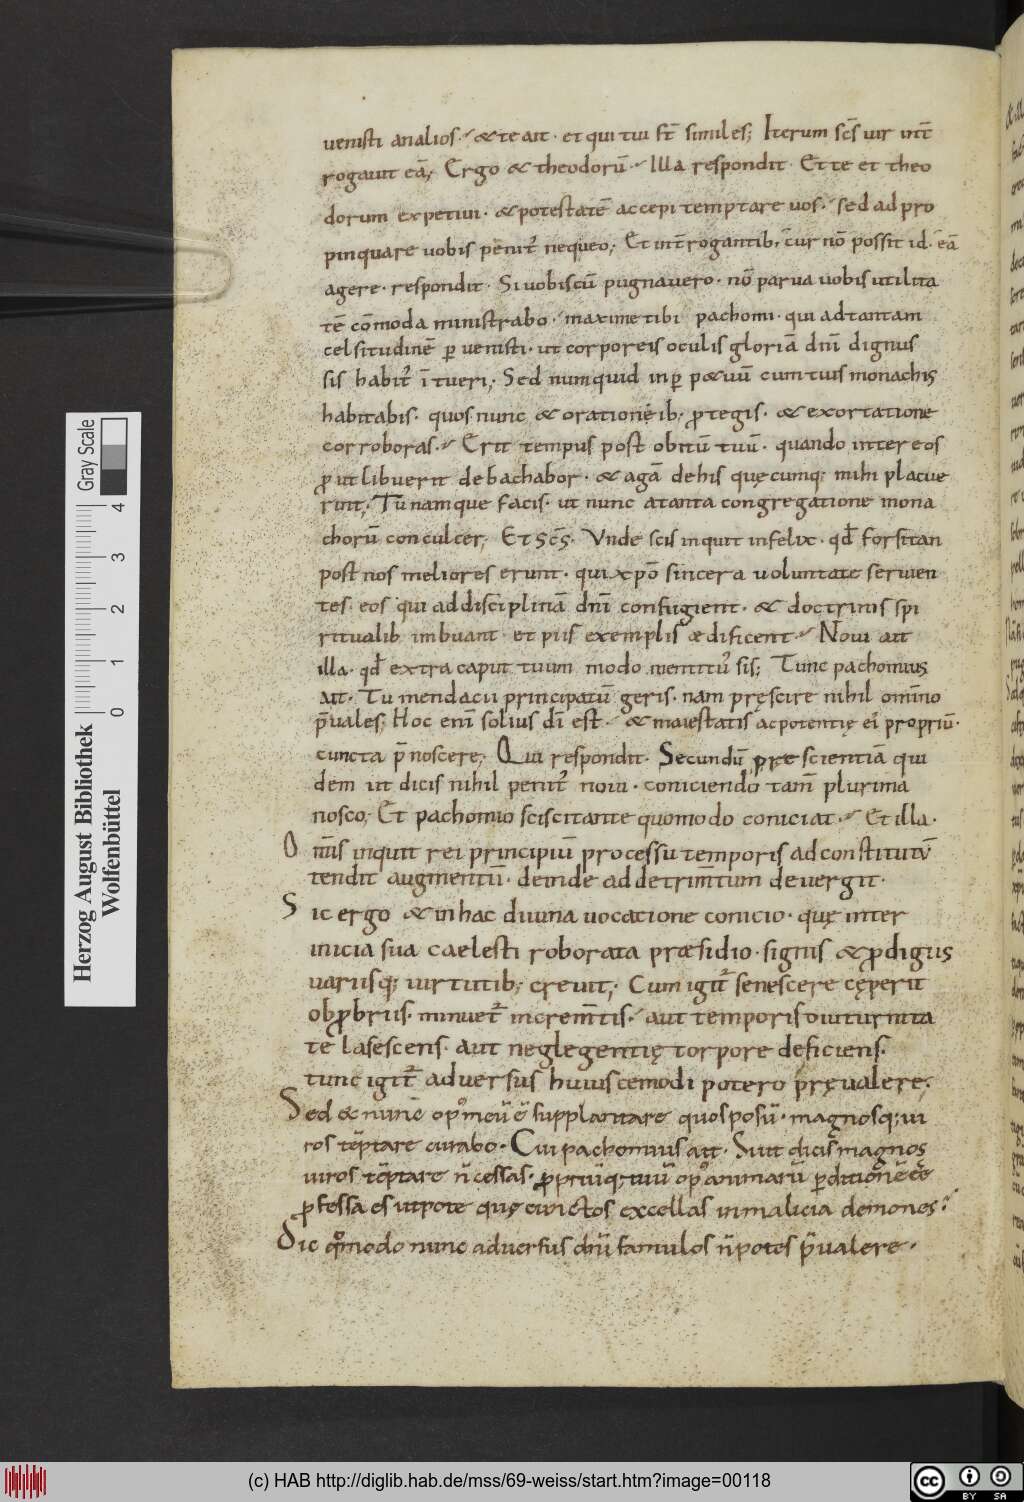 uenisti analios· & te ait· et qui tui st̄ similes; Iterum scs̄ uir int̄
rogauit eā; Ergo & theodorū· Illa respondit· Et te et theo
dorum expetiui· & potestatē accepi temptare uos· sed ad pro
pinquare uobis penit᷒ nequeo; Et int̄rogantib; cur nō possit id· eā
agere· respondit· Si uobiscū pugnauero· nō parua uobis utilita
tē cōmoda ministrabo· maxime tibi pachomi· qui ad tantam
celsitudinē ꝑuenisti· ut corporeis oculis gloriā dnī dignus
sis habit᷒ ītueri; Sed numquid inꝑpetuū cum tuis monachis
habitabis· quos nunc & orationęib; ꝓtegis· & exortatione
corroboras· Erit tempus post obitū tuū· quando inter eos
ꝓut libuerit debachabor· & agā de his quęcumq; mihi placue
rint; Tu namque facis· ut nunc a tanta congregatione mona
chorū conculcer; Et scs̄· Unde scis inquit infelix· qđ forsitan
post nos meliores erunt· qui xp̄o sincera uoluntate seruien
tes· eos qui ad disciplinā dnī confugient· & doctrinis spi
ritualib· imbuant· et piis exemplis ædificent· Noui ait
illa· qđ extra caput tuum modo mentit᷒ sis; Tunc pachomius
ait· Tu mendacii principatū geris· nam pręscire nihil omīno
p̄uales; Hoc enī solius dī est· & maiestatis ac potentię ei᷒ propriū·
cuncta p̄noscere; Qui respondit· Secundū prescientiā qui
dem ut dicis nihil penit᷒ noui· coniciendo tam̄ plurima
nosco; Et pachomio sciscitante quomodo coniciat· Et illa·
Omīs inquit rei principiū processu temporis ad constitutū
tendit augmentū· deinde ad detrim̄tum deuergit·
Sic ergo & in hac diuina uocatione conicio· quę inter
inicia sua caelesti roborata præsidio· signis & ꝓdigiis
uariisq; uirtutib; creuit; Cum igit᷒ senescere cęperit
obꝓbriis· minuet᷒ increm̄tis· aut temporis diuturnita
te lasescens· aut neglegentię torpore deficiens·
tunc igit᷒ aduersus huiuscemodi potero pręualere;
Sed & nunc op᷒ meū ē supplantare quos possū· magnosq; ui
ros tēptare curabo· Cui pachomius ait· Si ut dicis magnos
uiros tēptare n̄ cessas· ꝓpriūq; tuū op᷒ animarū ꝑditionē ēē
ꝓfessa es utpote quę cunctos excellas in malicia demones·
Dic qͦmodo nunc aduersus dnī famulos n̄ potes p̄ualere·
Gray Scale
0 1 2 3 4
Herzog August Bibliothek
Wolfenbüttel
(c) HAB http://diglib.hab.de/mss/69-weiss/start.htm?image=00118
cc BY SA